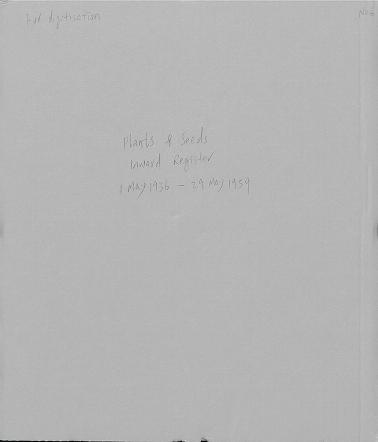 For digitisation
No 6
Plants & Seeds
Inward Register
1 May 1936 - 29 May 1959